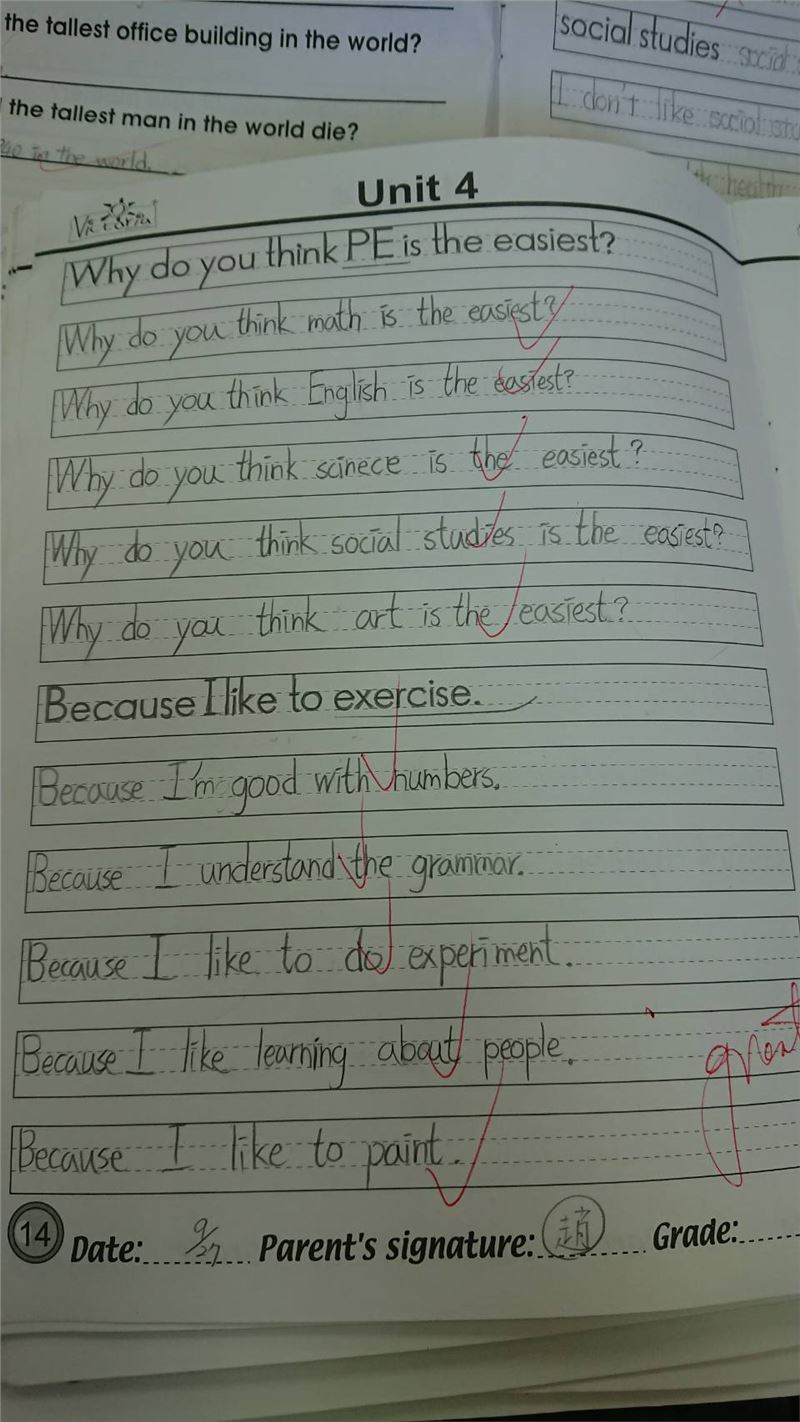 the tallest office building in the world?
the tallest man in the world die?
in the world.
social studies social
I don't like social
health
Unit 4
Victoria
Why do you think PE is the easiest?
Why do you think math is the easiest?
Why do you think English is the easiest?
Why do you think scinece is the easiest?
Why do you think social studies is the easiest?
Why do you think art is the easiest?
Because I like to exercise.
Because I'm good with numbers.
Because I understand the grammar.
Because I like to do experiment.
Because I like learning about people.
great
Because I like to paint.
14 Date: 9/27 Parent's signature: 趙 Grade: